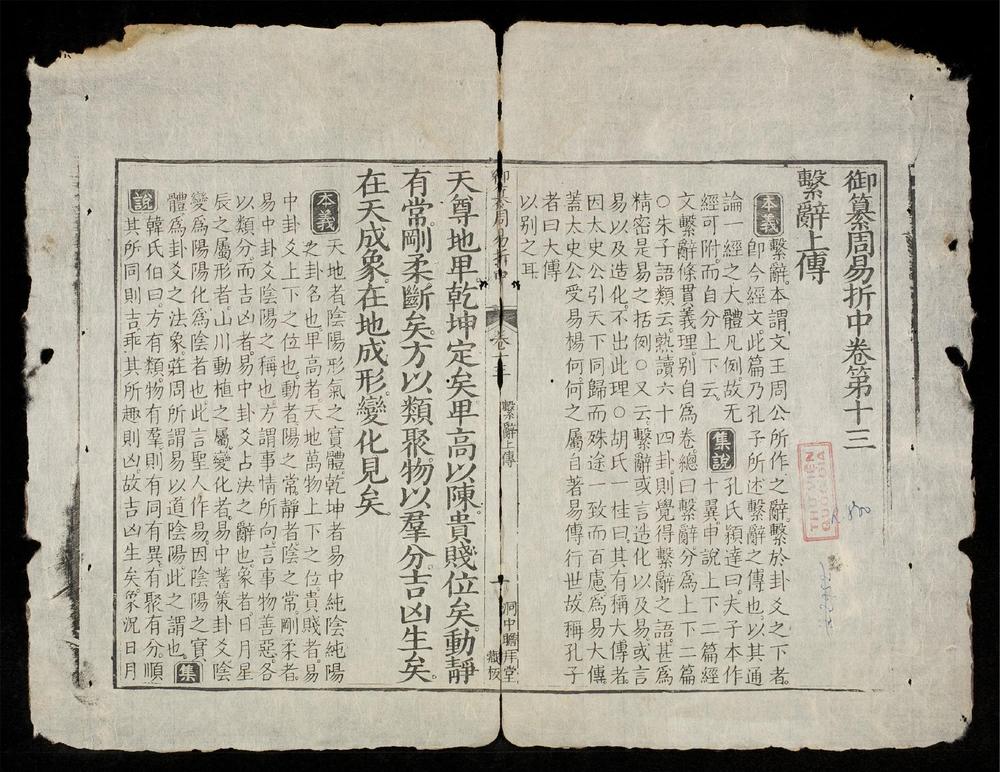 御纂周易折中卷第十三
繫辭上傳
本義 繫辭本謂文王周公所作之辭繫於卦爻之下者
即今經文此篇乃孔子所述繫辭之傳也以其通
論一經之大體凡例故无
經可附而自分上下云 集說 孔氏穎達曰夫子本作
十翼申說上下二篇經
文繫辭條貫義理別自為卷總曰繫辭分為上下二篇
○朱子語類云熟讀六十四卦則覺得繫辭之語甚為
精密是易之括例○又云繫辭或言造化以及易或言
易以及造化不出此理○胡氏一桂曰其有稱大傳者
因太史公引天下同歸而殊途一致而百慮為易大傳
蓋太史公受易楊何何之屬自著易傳行世故稱孔子
者曰大傳
以別之耳
御纂周易折中
卷十三
繫辭上傳
洞中瞻拜堂
藏板
天尊地卑乾坤定矣卑高以陳貴賤位矣動靜
有常剛柔斷矣方以類聚物以羣分吉凶生矣
在天成象在地成形變化見矣
本義 天地者陰陽形氣之實體乾坤者易中純陰純陽
之卦名也卑高者天地萬物上下之位貴賤者易
中卦爻上下之位也動者陽之常靜者陰之常剛柔者
易中卦爻陰陽之稱也方謂事情所向言事物善惡各
以類分而吉凶者易中卦爻占決之辭也象者日月星
辰之屬形者山川動植之屬變化者易中蓍策卦爻陰
變為陽陽化為陰者也此言聖人作易因陰陽之實
體為卦爻之法象莊周所謂易以道陰陽此之謂也 集
說 韓氏伯曰方有類物有羣則有同有異有聚有分順
其所同則吉乖其所趣則凶故吉凶生矣象況日月
THU VIEN
QUOC GIA